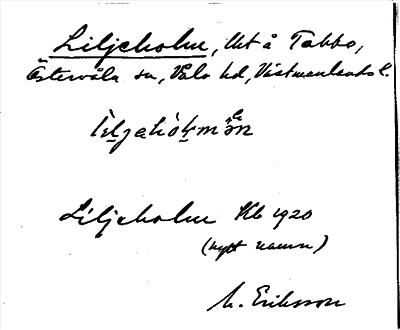 Liljeholm, lht å Tobbo,
Östervåla sn, Våla hd, Västmanlands l.
Liljeholm Kb 1920
(nytt namn)
M. Eriksson